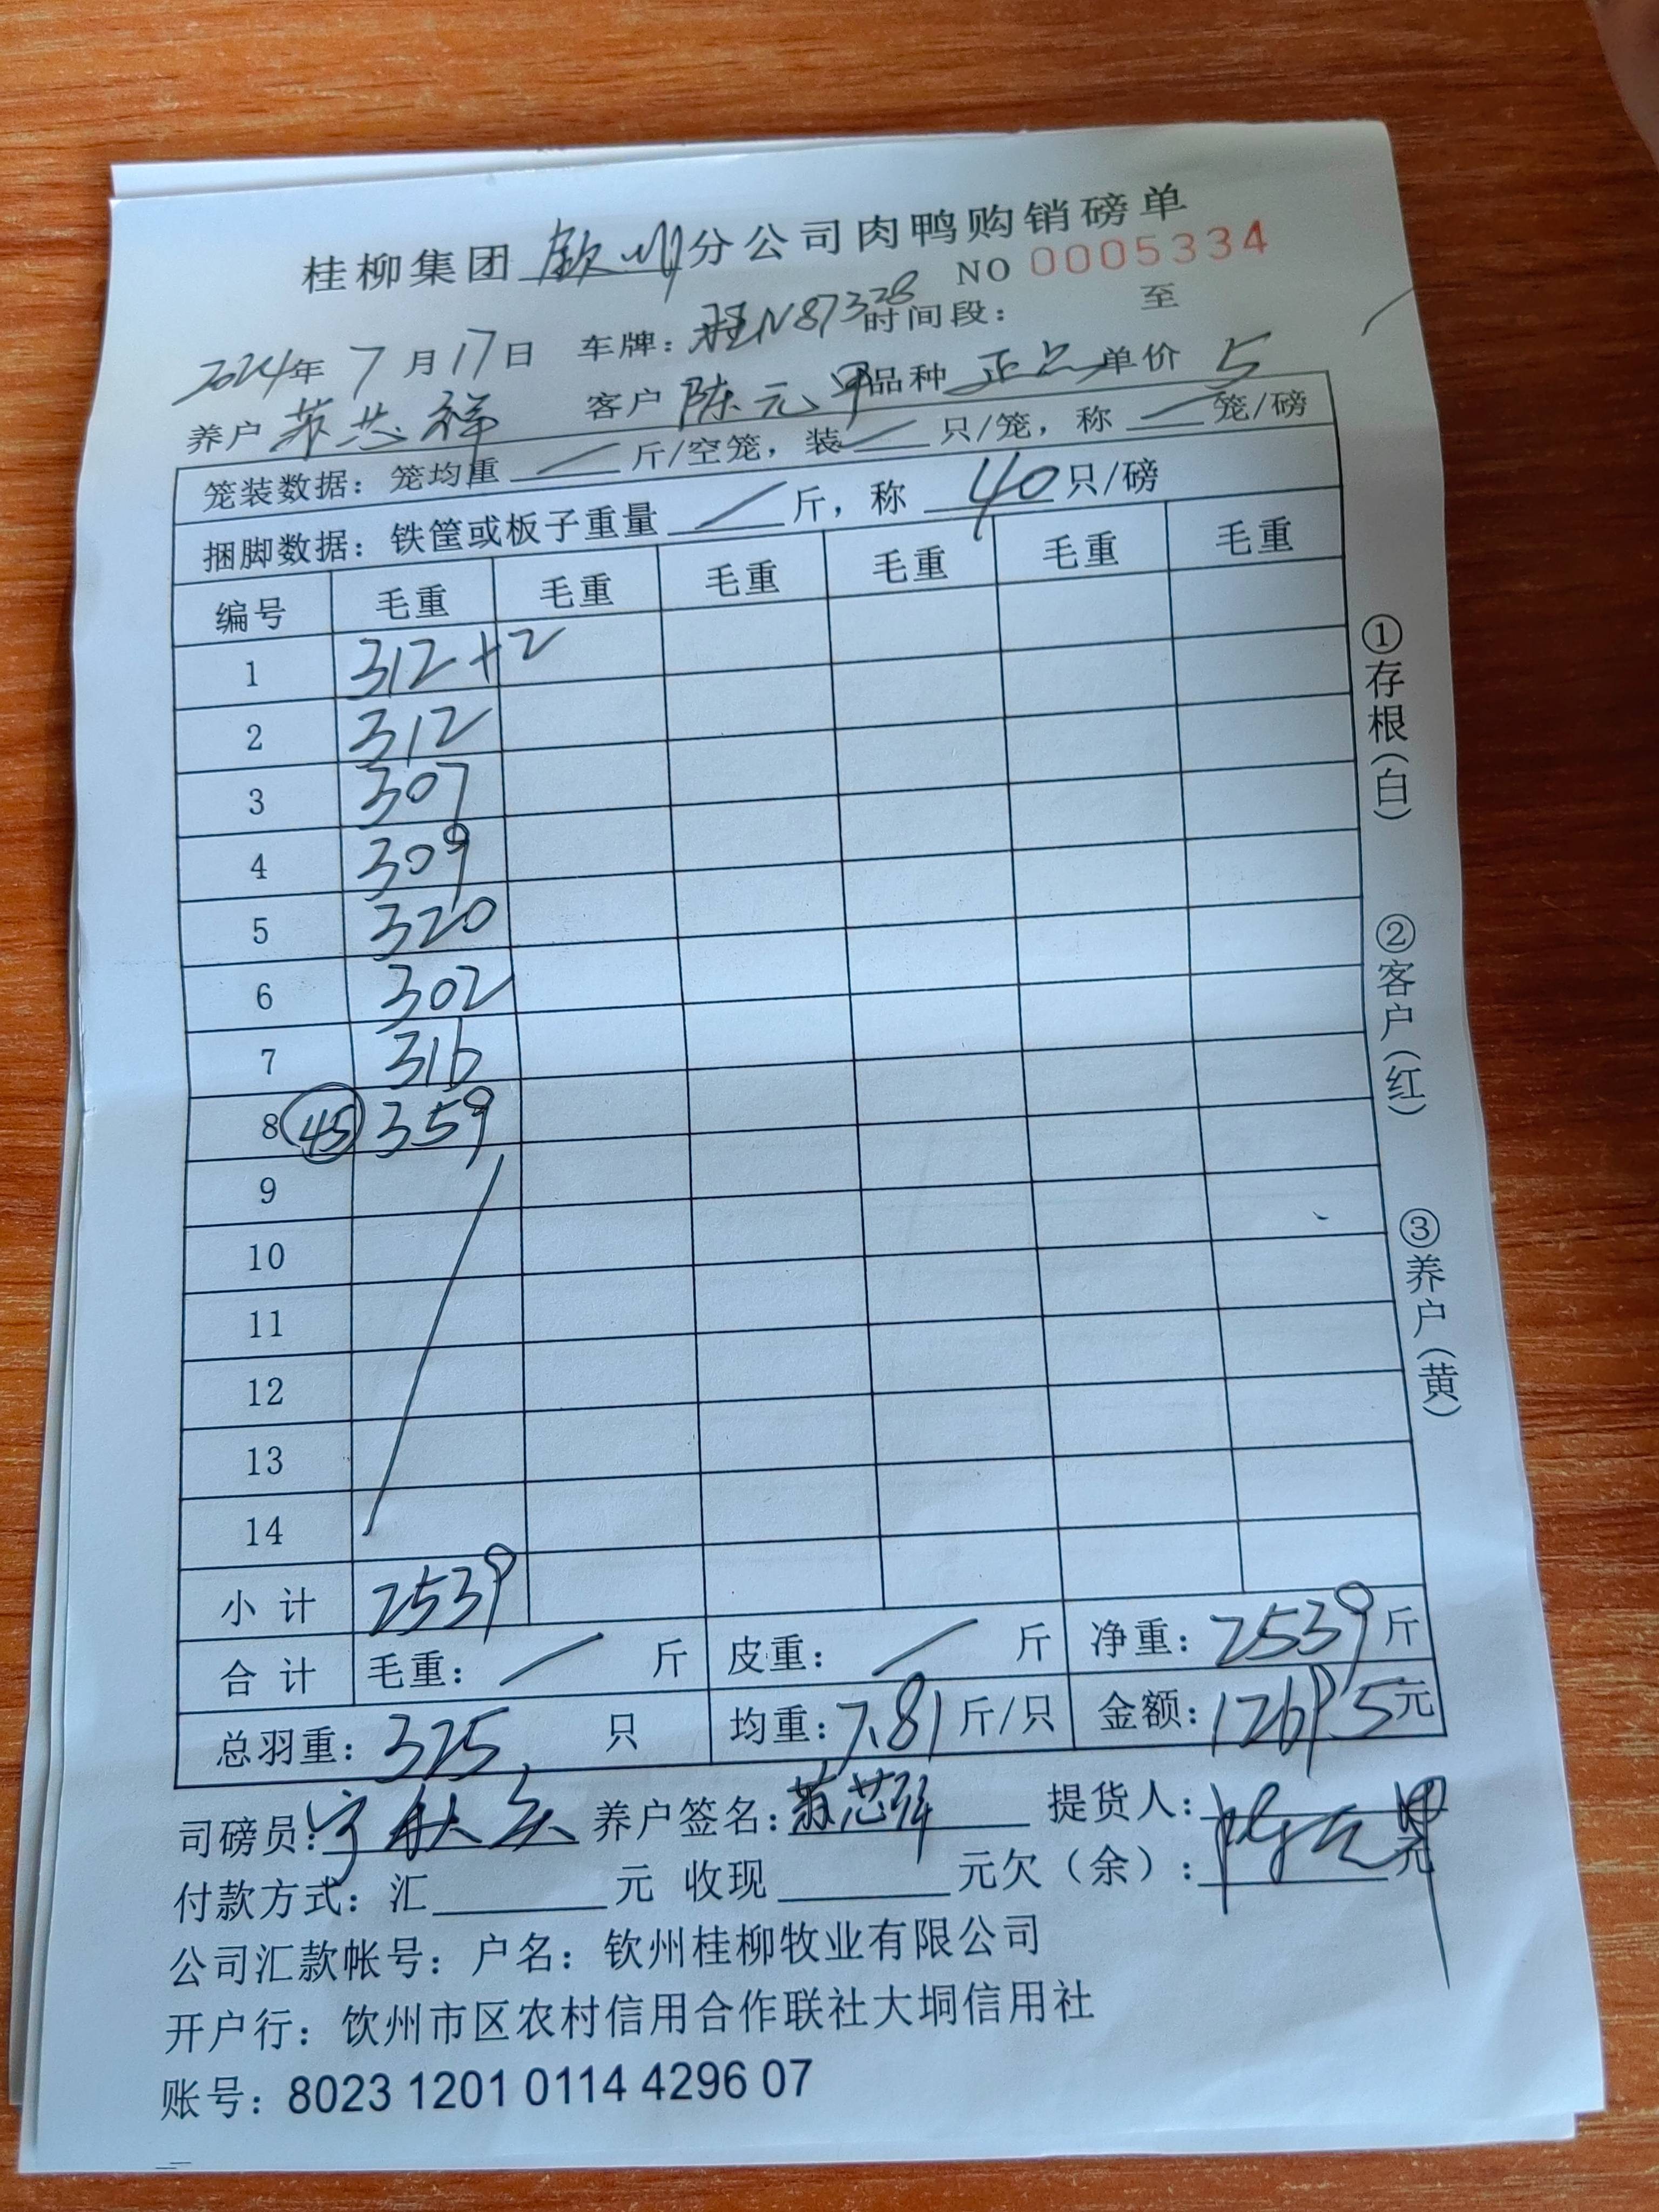 桂柳集团 钦州 分公司肉鸭购销磅单
NO 0005334
2024年 7 月 17 日 车牌：桂N87328 时间段： 至
养户 苏芯祥 客户 陈元甲 品种 正品 单价 5
笼装数据：笼均重 / 斤/空笼，装 / 只/笼，称 / 笼/磅
捆脚数据：铁筐或板子重量 / 斤，称 40 只/磅
编号 毛重 毛重 毛重 毛重 毛重 毛重
1 312+2
2 312
3 307
4 309
5 320
6 302
7 316
8 45 359
9
10
11
12
13
14
小计 2539
合计 毛重： / 斤 皮重： / 斤 净重：2539斤
总羽重：325 只 均重：7.81斤/只 金额：12695元
司磅员： 养户签名：苏芯祥 提货人：
付款方式：汇 元 收现 元欠（余）： 元
公司汇款帐号：户名：钦州桂柳牧业有限公司
开户行：钦州市区农村信用合作联社大垌信用社
账号：8023 1201 0114 4296 07
①存根（白）
②客户（红）
③养户（黄）